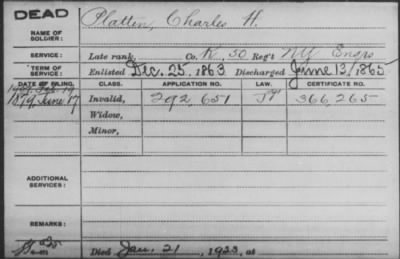 DEAD
NAME OF SOLDIER: Plattin, Charles H.
SERVICE: Late rank, Co. K, 50 Reg't N.Y. Engrs
TERM OF SERVICE: Enlisted Dec. 25, 1863 Discharged June 13, 1865
DATE OF FILING. CLASS. APPLICATION NO. LAW. CERTIFICATE NO.
1879, June 17 Invalid, 292,651 366,265
Widow,
Minor,
ADDITIONAL SERVICES:
REMARKS:
Died Jan. 21, 1923, at